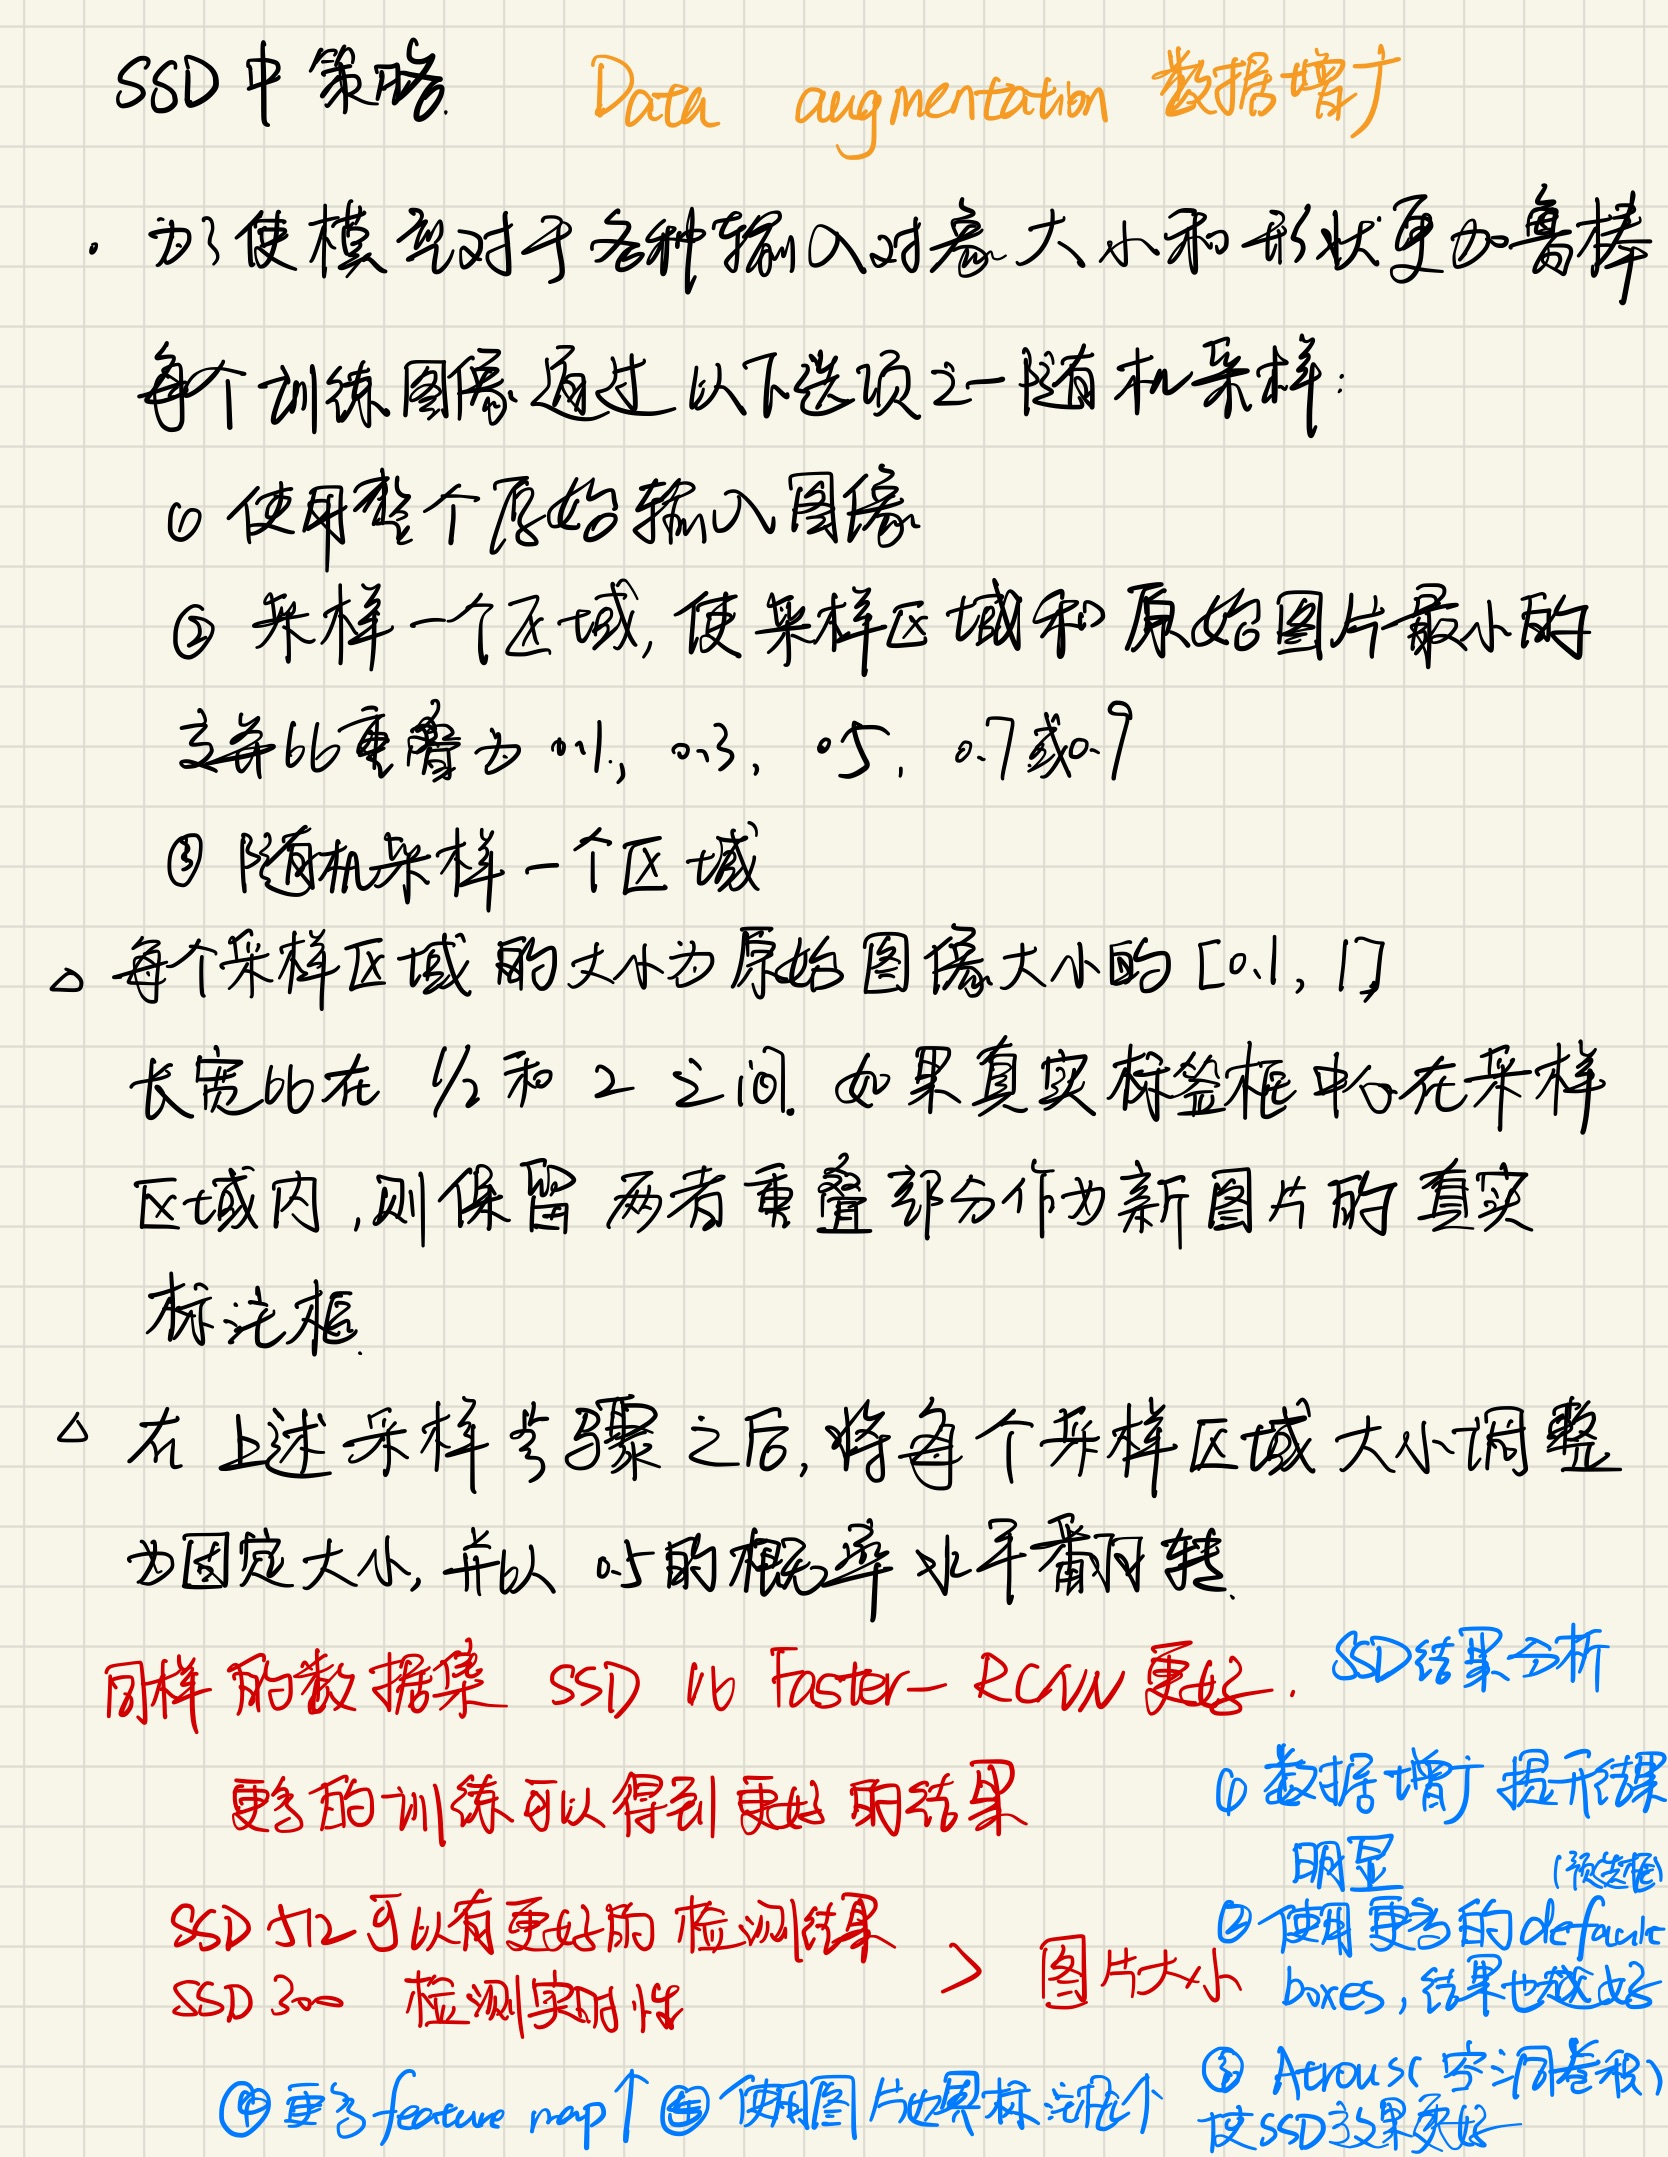 SSD中策略. Data augmentation 数据增广
· 为了使模型对于各种输入对象大小和形状更加鲁棒
每个训练图像通过以下选项之一随机采样:
① 使用整个原始输入图像
② 采样一个区域, 使采样区域和原始图片最小的
交并比重叠为 0.1, 0.3, 0.5, 0.7或0.9
③ 随机采样一个区域
△ 每个采样区域的大小为原始图像大小的 [0.1, 1]
长宽比在 1/2 和 2 之间. 如果真实标签框中心在采样
区域内, 则保留两者重叠部分作为新图片的真实
标注框.
△ 在上述采样步骤之后, 将每个采样区域大小调整
为固定大小, 并以 0.5的概率水平翻转.
同样的数据集 SSD 比 Faster-RCNN 更好.
更多的训练可以得到更好的结果
SSD 512 可以有更好的检测结果
SSD 300 检测实时性
> 图片大小
SSD结果分析
① 数据增广提升结果
明显
(预选框)
② 使用更多的default
boxes, 结果也越好
③ Atrous(空洞卷积)
使SSD效果更好
④ 更多feature map ↑ ⑤ 使用图片边界标注框↑